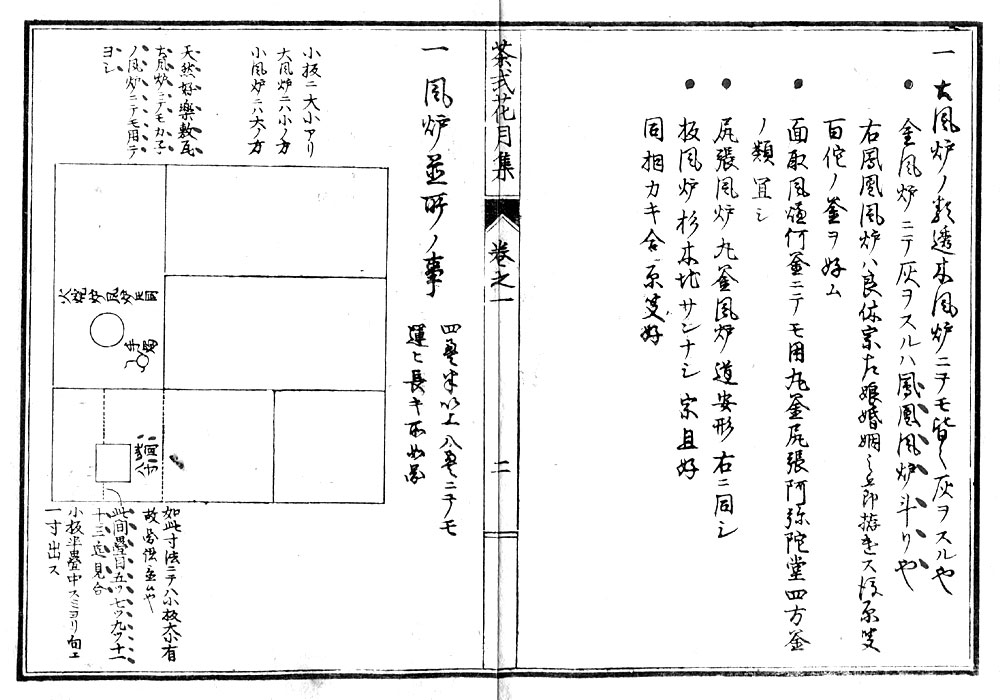 一 大風炉ノ類透木風炉ニテモ皆々灰ヲスルや
● 金風炉ニテ灰ヲスルハ鳳凰風炉斗リや
右鳳凰風炉ハ良休宗左娘婚姻之
百侘ノ釜ヲ好ム
● 面取風炉何釜ニテモ用丸釜尻張阿弥陀堂四方釜
ノ類宜シ
● 尻張風炉丸釜風炉道安形右ニ同シ
● 板風炉杉木地サンナシ宗旦好
同相カキ合原叟好
茶式花月集
巻之一
二
一 風炉並所ノ事
四畳半以上八畳ニテモ
運ヒ長キ不如図
小板ニ大小アリ
大風炉ニハ小ノ方
小風炉ニハ大ノ方
天然好楽敷瓦
大風炉ニテモカ子
ノ風炉ニテモ用テ
ヨシ
如此寸法ニテハ小板大小有
此間畳目五ツ七ツ九ツ十一
十三迄見合
小板半畳中スミヨリ向エ
一寸出ス